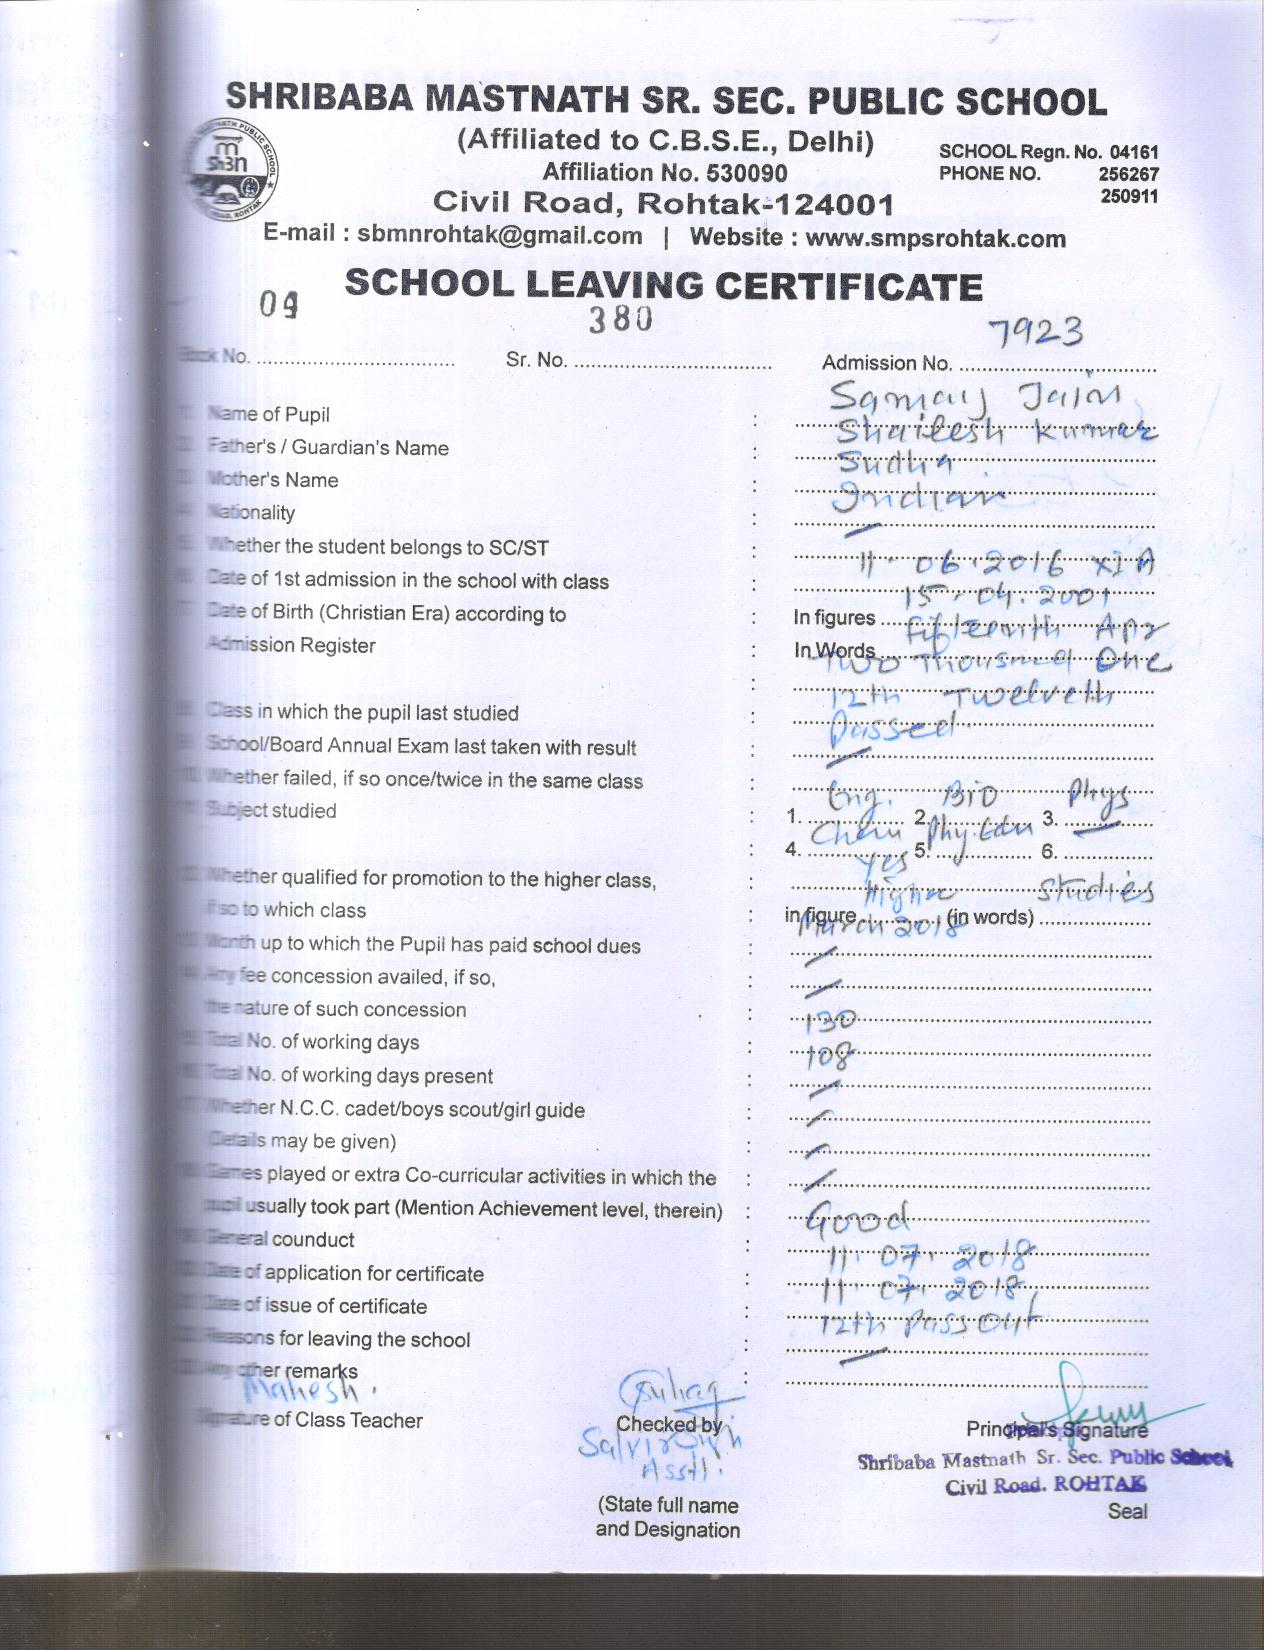 SHRIBABA MASTNATH SR. SEC. PUBLIC SCHOOL
(Affiliated to C.B.S.E., Delhi)
Affiliation No. 530090
SCHOOL Regn. No. 04161
PHONE NO. 256267
250911
Civil Road, Rohtak-124001
E-mail : sbmnrohtak@gmail.com | Website : www.smpsrohtak.com
SCHOOL LEAVING CERTIFICATE
Book No. 09 Sr. No. 380 Admission No. 7923
Name of Pupil : Samay Jain
Father's / Guardian's Name : Shailesh Kumar
Mother's Name : Sudha
Nationality : Indian
Whether the student belongs to SC/ST :
Date of 1st admission in the school with class : 11.06.2016 XI A
Date of Birth (Christian Era) according to : In figures 15.04.2001
Admission Register : In Words Fifteenth Apr
: Two Thousand One
Class in which the pupil last studied : 12th Twelveth
School/Board Annual Exam last taken with result : Passed
Whether failed, if so once/twice in the same class
Subject studied : 1. Eng. 2. BIO 3. Phys
: 4. Chem 5. Phy. Edu 6.
Whether qualified for promotion to the higher class, : Yes
if so to which class : in figure Higher (in words) Studies
Month up to which the Pupil has paid school dues : March 2018
Any fee concession availed, if so, :
the nature of such concession :
Total No. of working days : 130
Total No. of working days present : 108
Whether N.C.C. cadet/boys scout/girl guide :
Details may be given) :
Games played or extra Co-curricular activities in which the :
pupil usually took part (Mention Achievement level, therein) :
General counduct : Good
Date of application for certificate : 11.07.2018
Date of issue of certificate : 11.07.2018
Reasons for leaving the school : 12th Pass Out
Any other remarks :
Mahesh
Signature of Class Teacher
Checked by
Principal's Signature
Shribaba Mastnath Sr. Sec. Public School
Civil Road. ROHTAK
Seal
(State full name
and Designation